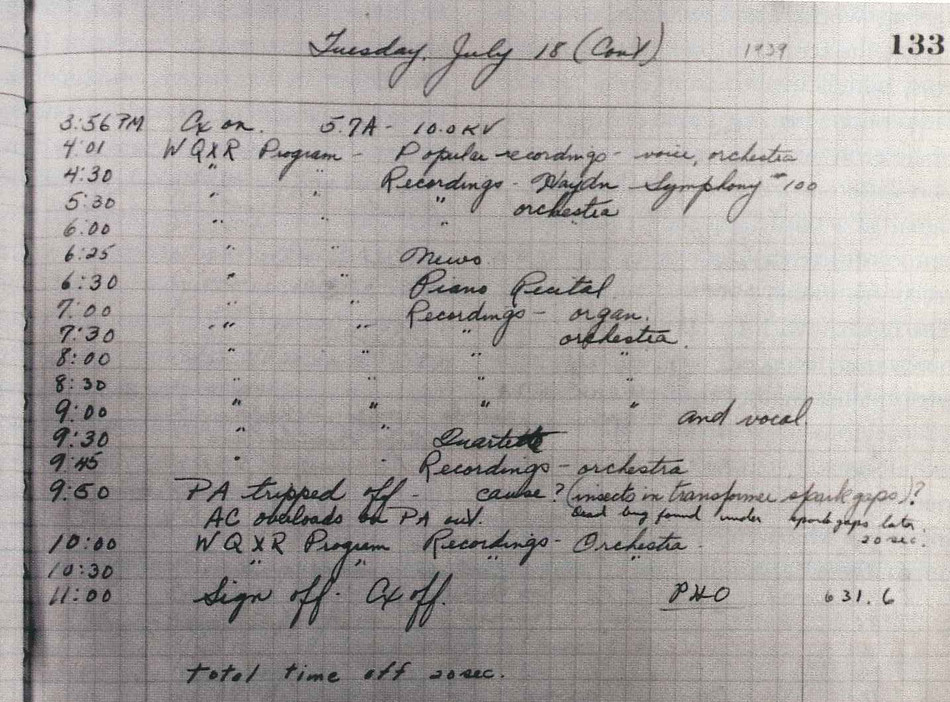 Tuesday, July 18 (Con't) 1939 133
3:56 PM Cx on. 5.7A - 10.0 KV
4:01 WQXR Program - Popular recordings - voice, orchestra
4:30 " " Recordings - Haydn Symphony #100
5:30 " " " orchestra
6:00 " " " "
6:25 " " News
6:30 " " Piano Recital
7:00 " " Recordings - organ.
7:30 " " " orchestra.
8:00 " " " "
8:30 " " " "
9:00 " " " " and vocal
9:30 " " Quartette
9:45 " " Recordings - orchestra
9:50 PA tripped off - cause? (insects in transformer spark gaps)?
AC overloads on PA out. Dead bug found under spark gaps later.
20 sec.
10:00 WQXR Program Recordings - Orchestra.
10:30 " " " " "
11:00 Sign off. Cx off. PHO 631.6
total time off 20 sec.